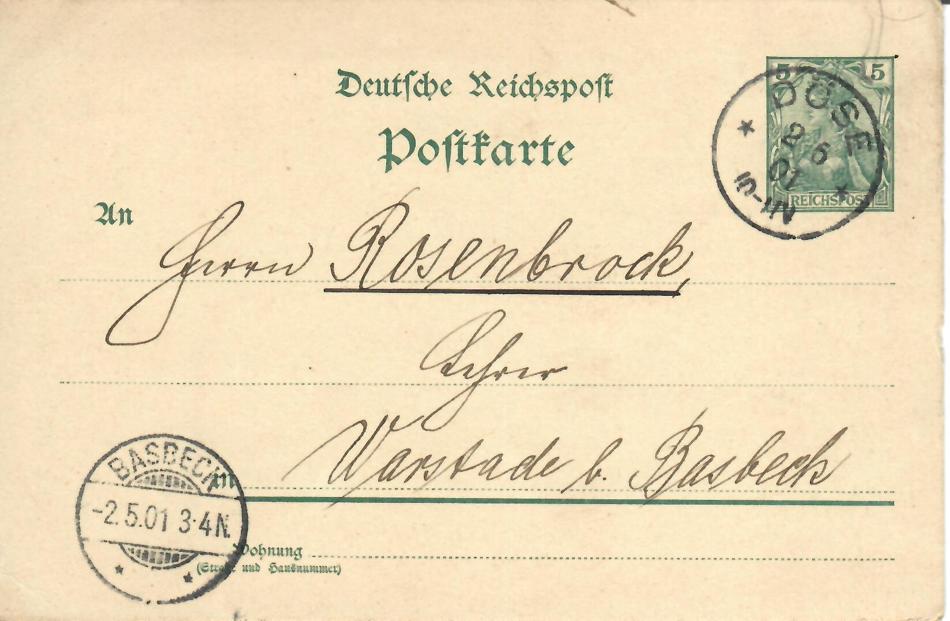 Deutsche Reichspost
Postkarte
5 5
REICHSPOST
DÖSE
2 5
01
An
Herrn Rosenbrock,
Lehrer
in Warstade b. Basbeck
BASBECK
-2.5.01 3-4N.
Wohnung
(Straße und Hausnummer)